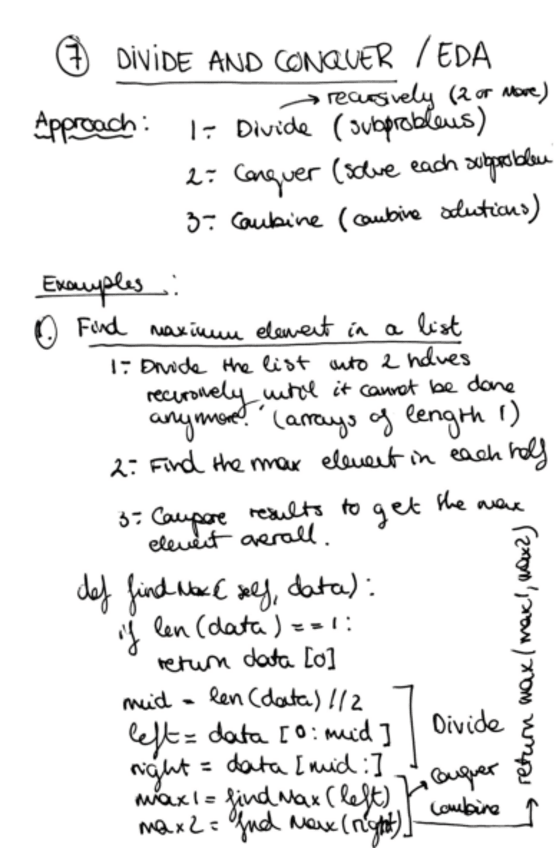 ⑦ DIVIDE AND CONQUER / EDA
→ recursively (2 or more)
Approach: 1- Divide (subproblems)
2- Conquer (solve each subproblem
3- Combine (combine solutions)
Examples:
1. Find maximum element in a list
1- Divide the list into 2 halves
recursively until it cannot be done
anymore. (arrays of length 1)
2- Find the max element in each half
3- Compare results to get the max
element overall.
def findMax(self, data):
if len(data) == 1:
return data [0]
mid = len(data)//2
left = data [0:mid]
right = data [mid:]
Divide
max1 = findMax(left)
→ Conquer
max2 = find Max(right)
Combine
return max(max1, max2)